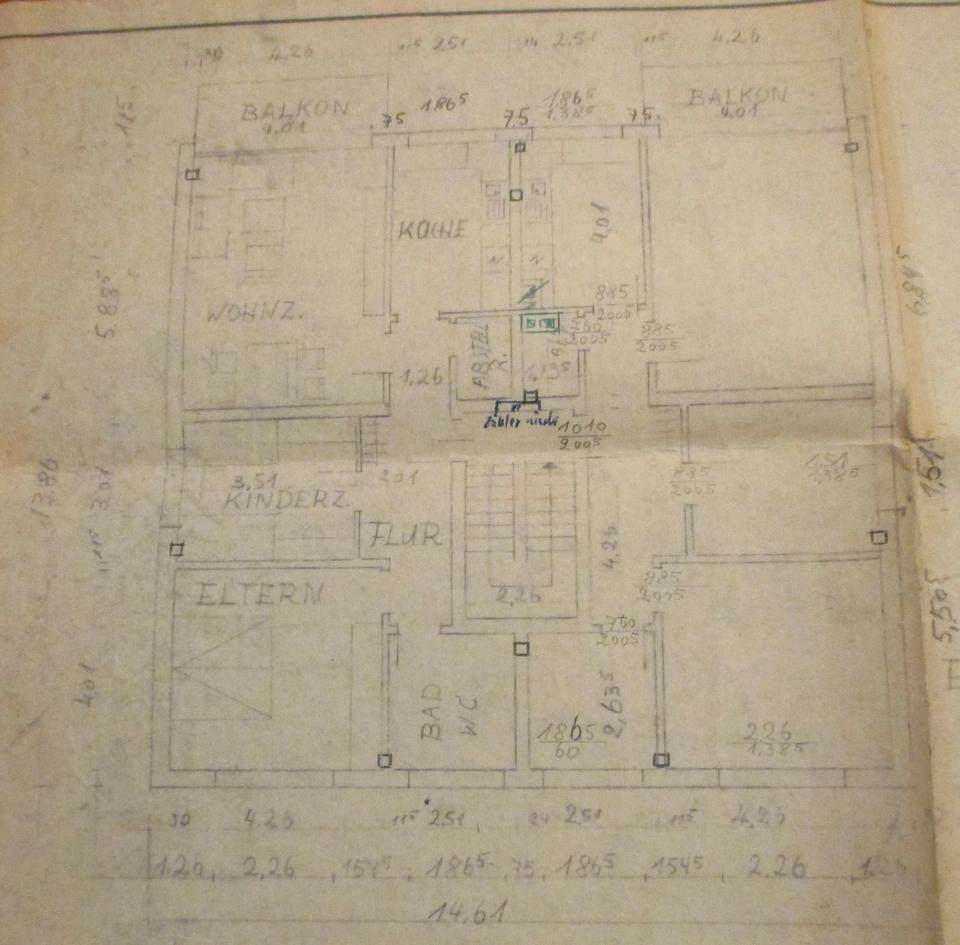 30 4.26 11⁵ 251 24 2.51 11⁵ 4.26
BALKON 186⁵ 186⁵ BALKON
4.01 75 75 1.38⁵ 75 4.01
KÜCHE 4,01
5.88⁵
WOHNZ. 885
2005
760
2005
885
2005
ABSTELL
R.
1,26
Zählernische
1010
2005
13.86 3,01
3,51 201 885
2005
151
1.38⁵
1,51
KINDERZ.
FLUR 4.26
11⁵
ELTERN 2,26 885
2005
5,50⁵
760
2005
4.01 BAD
WC
2,63⁵
186 5
60
226
1.38⁵
30 4.26 11⁵ 251 24 2.51 11⁵ 4,26
1.26 2,26 154⁵ 186⁵ 75 186⁵ 154⁵ 2.26 1.26
14.61